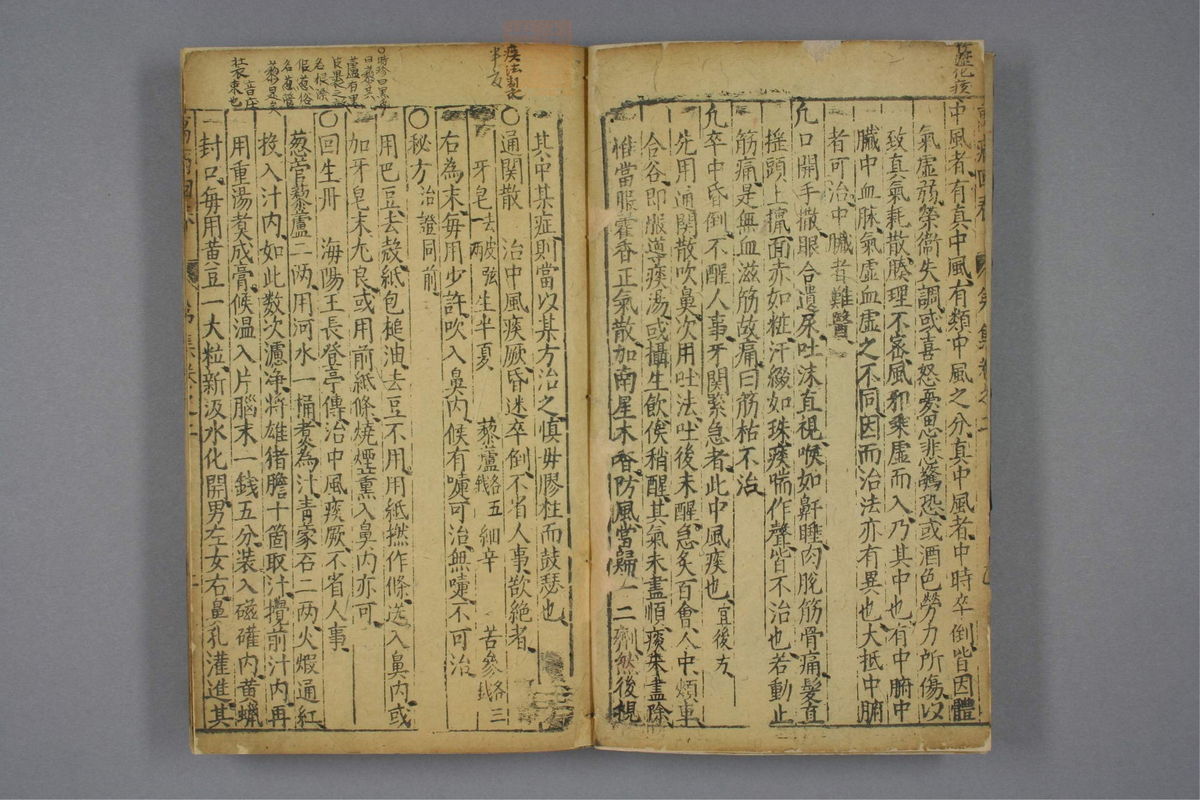 中風者有真中風有類中風之分真中風者中時卒倒皆因體
氣虛弱榮衛失調或喜怒憂思悲驚恐或酒色勞力所傷以
致真氣耗散腠理不密風邪乘虛而入乃其中也有中腑中
臟中血脉氣虛血虛之不同因而治法亦有異也大抵中腑
者可治中臟者難醫
凢口開手撒眼合遺尿吐沫直視喉如鼾睡肉脫筋骨痛髮直
揺頭上攛面赤如粧汗綴如珠痰喘作聲皆不治也若動止
筋痛是無血滋筋故痛曰筋枯不治
凢卒中昏倒不醒人事牙關緊急者此中風痰也宜後方
先用通関散吹鼻次用吐法吐後未醒急灸百會人中頰車
合谷即服導痰湯或攝生飲俟稍醒其氣未盡順痰未盡除
惟當服藿香正氣散加南星木香防風當歸一二劑然後視
痰法製
半夏
其中某症則當以某方治之慎毋膠柱而鼓瑟也
〇通関散 治中風痰厥昏迷卒倒不省人事欲絶者
牙皂去皮弦兩 生半夏 藜蘆五錢 細辛 苦參三錢
右為末每用少許吹入鼻内候有嚏可治無嚏不可治
〇秘方治證同前
用巴豆去殼紙包槌油去豆不用用紙撚作條送入鼻内或
加牙皂末尢良或用前紙條燒煙薰入鼻内亦可
〇回生丹 海陽王長登亭傳治中風痰厥不省人事
葱管藜蘆二兩用河水一桶煮為汁青蒙石二兩火煆通紅
投入汁内如此数次濾净將雄猪膽十箇取汁攪前汁内再
用重湯煑成膏候温入片腦末一錢五分装入磁礶内黄蠟
封口每用黄豆一大粒新汲水化開男左女右鼻孔灌進其